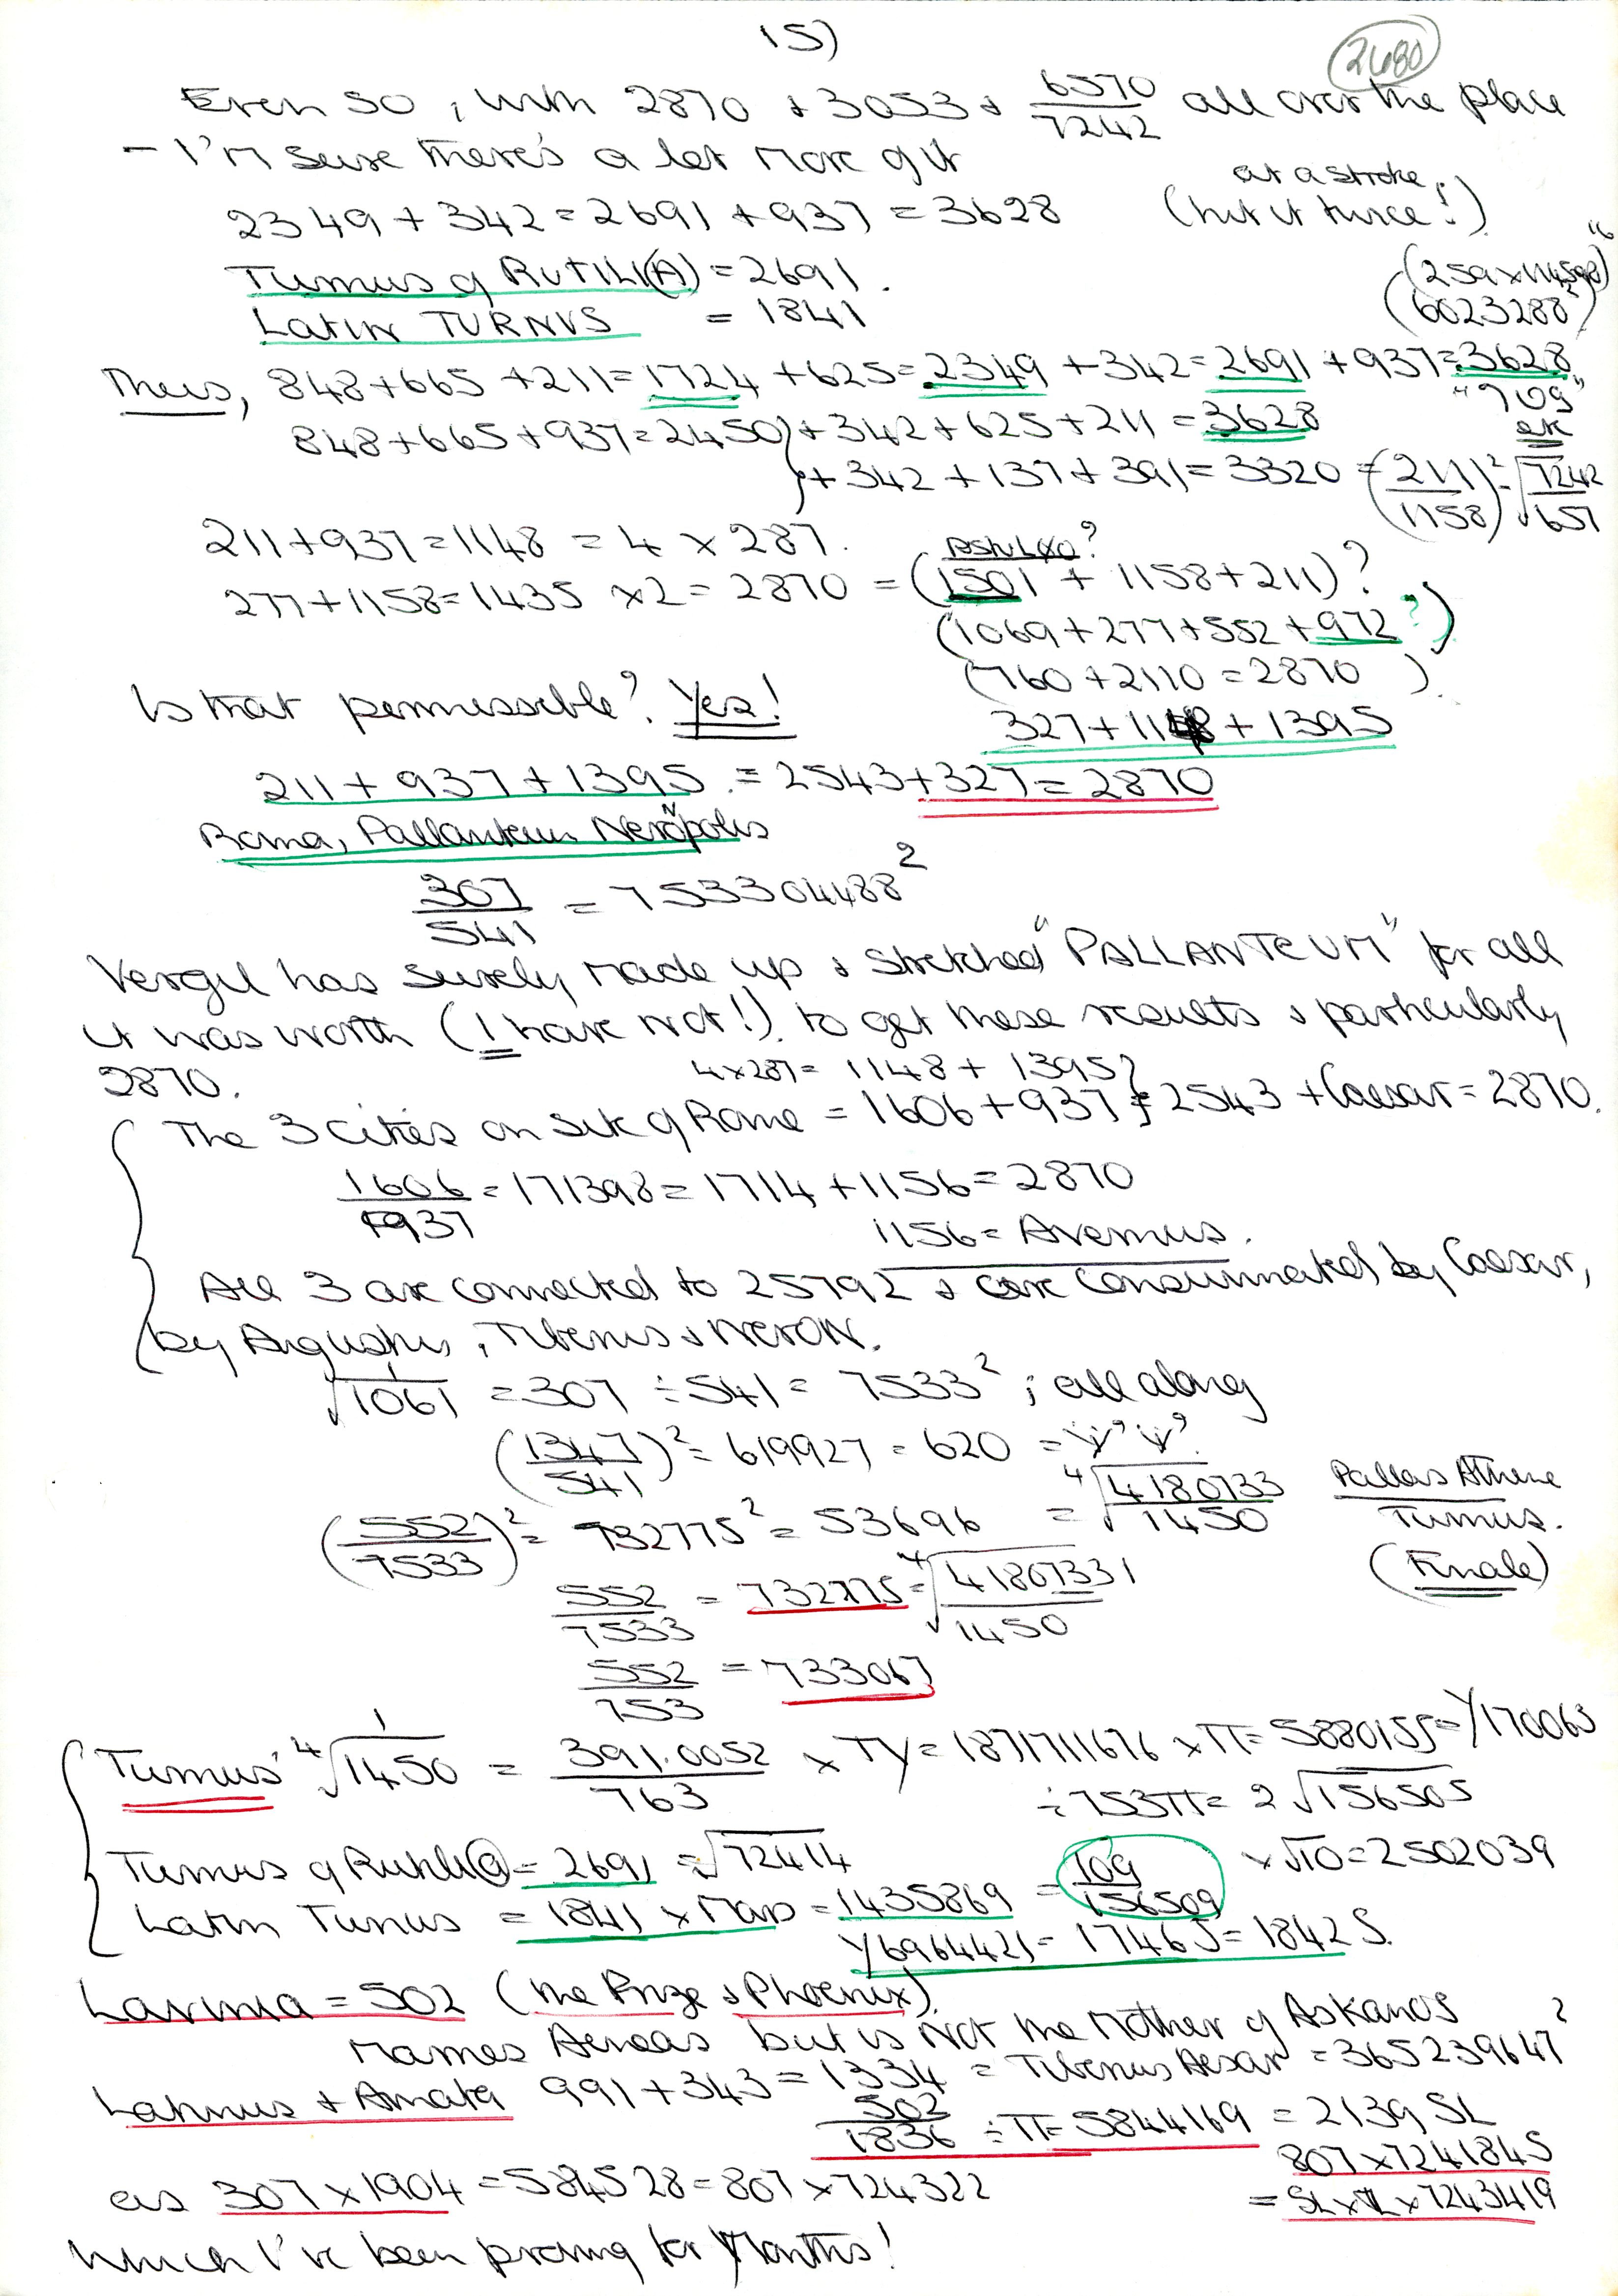 15)
2680
Even so, with 2870 + 3053 + 6570/7242 all over the place
- I'm sure there's a lot more of it
at a stroke,
2349 + 342 = 2691 + 937 = 3628 (hit it twice!)
Turnus of RUTILI(A) = 2691.
(259 x 114598)
Latin TURNUS = 1841
(6023288²)
Thus, 848 + 665 + 211 = 1724 + 625 = 2349 + 342 = 2691 + 937 = 3628
"709"
848 + 665 + 937 = 2450) + 342 + 625 + 211 = 3628
etc
} + 342 + 137 + 391 = 3320 = (211/1158)² = √7242/657
211 + 937 = 1148 = 4 x 287.
277 + 1158 = 1435 x 2 = 2870 = (1501 + 1158 + 211)?
(1069 + 277 + 552 + 972?)
(760 + 2110 = 2870).
Is that permissable? Yes!
327 + 1148 + 1395
211 + 937 + 1395 = 2543 + 327 = 2870
Roma, Pallanteum Neropolis
N
307/541 = 753304488²
Vergil has surely made up & stretched "PALLANTEUM" for all
it was worth (I have not!) to get these results & particularly
2870.
4 x 287 = 1148 + 1395}
The 3 cities on site of Rome = 1606 + 937 } = 2543 + Caesar = 2870.
1606/937 = 171398 = 1714 + 1156 = 2870
1156 = Avernus.
All 3 are connected to 25792 & are consummated by Caesar,
by Augustus, Tiberius & NerON.
√1/1061 = 307 ÷ 541 = 7533²; all along
(1347/541)² = 619927 = 620
(552/7533)² = 732775² = 53696 = ⁴√4180733/1450
Pallas Athene/Turnus.
(Finale)
552/7533 = 732775 = ⁴√41807331/1450
552/753 = 733067
Turnus ⁴√1/1450 = 391.0052/763 x TY = 1871711676 x π = 5880155 = Y170063
÷ 753π = 2√156505
Turnus of Rutuli@ = 2691 = √72414
x √10 = 2502039
Latin Turnus = 1841 x Mars = 1435869 = 109/156509
Y6964421 = 17465 = 1842 S.
Lavinia = 502 (the Prize & Phoenix).
Marries Aeneas but is Not the Mother of AsKanios
Latinus + Amata 991 + 343 = 1334 = Tiberius Aesar = 365239647²
502/1836 ÷ π = 5844169 = 2139 SL
807 x 7241845
as 307 x 1904 = 584528 = 807 x 724322
= SL x TL x 7243419
Which I've been proving for Months!